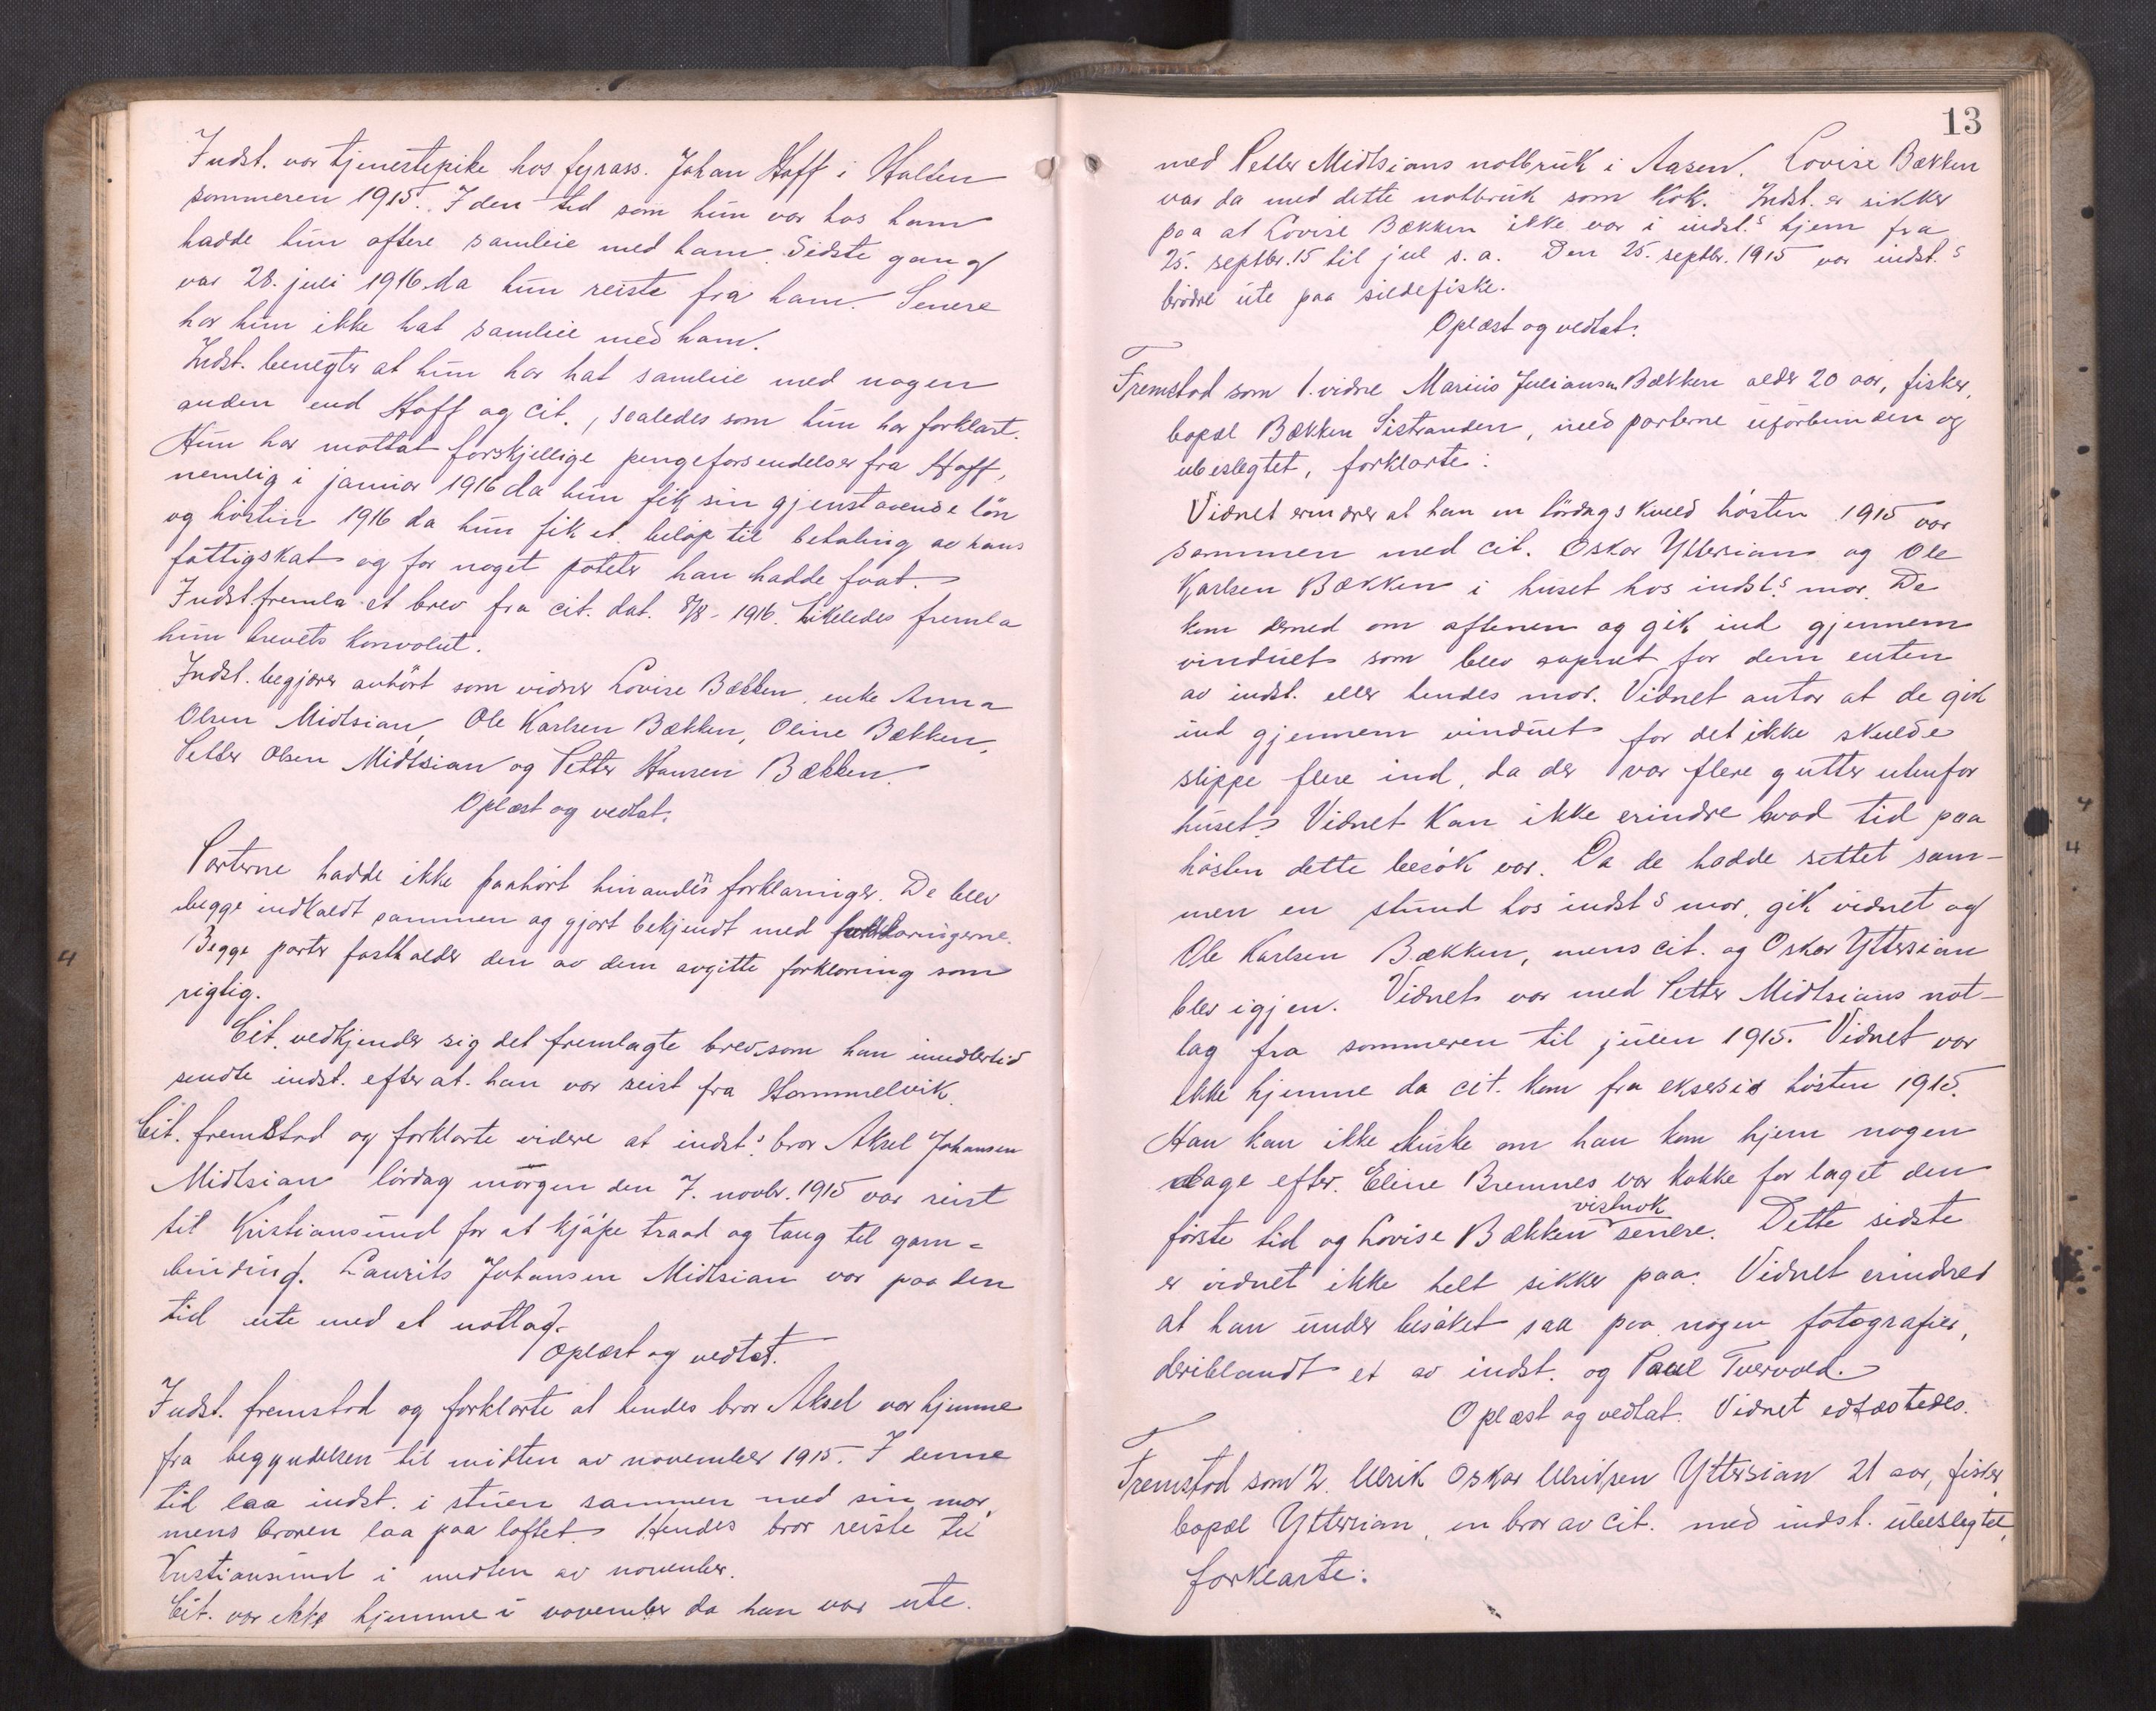 Indst. var tjenestepike hos fyrass. Johan Hoff i Halten
sommeren 1915. I den tid som hun var hos ham
hadde hun oftere samleie med ham. Sidste gang
var 28. juli 1916 da hun reiste fra ham. Senere
har hun ikke hat samleie med ham.
Indst. benegter at hun har hat samleie med nogen
anden end Hoff og cit., saaledes som hun har forklart.
Hun har mottat forskjellige pengeforsendelser fra Hoff,
nemlig i januar 1916 da hun fik sin gjenstaaende løn
og høsten 1916 da hun fik et beløp til betaling av hans
fattigskat og for noget poteter han hadde faat.
Indst. fremla et brev fra cit. dat. 8/8 - 1916. Likeledes fremla
hun brevets konvolut.
Indst. begjærer avhørt som vidner Lovise Bækken, enke Anna
Olsen Midtsian, Ole Karlsen Bækken, Oline Bækken,
Petter Olsen Midtsian og Petter Hansen Bækken.
Oplæst og vedtat.
Parterne hadde ikke paahørt hinandens forklaringer. De blev
begge indkaldt sammen og gjort bekjendt med forklaringerne.
Begge parter fastholder den av dem avgitte forklaring som
rigtig.
Cit. vedkjender sig det fremlagte brev som han imidlertid
sendte indst. efter at han var reist fra Hommelvik.
Cit. fremstod og forklarte videre at indst.s bror Aksel Johansen
Midtsian lørdag morgen den 7. novbr. 1915 var reist
til Kristiansund for at kjøpe traad og taug til garn-
binding. Laurits Johansen Midtsian var paa den
tid ute med et notlag.
Oplæst og vedtat.
Indst. fremstod og forklarte at hendes bror Aksel var hjemme
fra begyndelsen til midten av november 1915. I denne
tid laa indst. i stuen sammen med sin mor,
mens broren laa paa loftet. Hendes bror reiste til
Kristiansund i midten av november.
Cit. var ikke hjemme i november da han var ute
13
med Petter Midtsians notbruk i Aasen. Lovise Bækken
var da med dette notbruk som kok. Indst. er sikker
paa at Lovise Bækken ikke var i indst.s hjem fra
25. septbr. 15 til jul s.a. Den 25. septbr. 1915 var indst.s
brødre ute paa sildefiske.
Oplæst og vedtat.
Fremstod som 1. vidne Marius Juliansen Bækken alder 20 aar, fisker,
bopæl Bækken Sistranden, med parterne uforbunden og
ubeslegtet, forklarte:
Vidnet erindrer at han en lørdagskveld høsten 1915 var
sammen med cit. Oskar Yttersian og Ole
Karlsen Bækken i huset hos indst.s mor. De
kom derned om aftenen og gik ind gjennem
vinduet som blev aapnet for dem enten
av indst. eller hendes mor. Vidnet antar at de gik
ind gjennem vinduet for det ikke skulde
slippe flere ind, da der var flere gutter utenfor
huset. Vidnet kan ikke erindre hvad tid paa
høsten dette besøk var. Da de hadde sittet sam-
men en stund hos indst.s mor, gik vidnet og
Ole Karlsen Bækken, mens cit. og Oskar Yttersian
blev igjen. Vidnet var med Petter Midtsians not-
lag fra sommeren til julen 1915. Vidnet var
ikke hjemme da cit. kom fra eksersis høsten 1915.
Han kan ikke huske om han kom hjem nogen
dage efter. Eline Bremnes var kokke for laget den
første tid og Lovise Bækken vistnok senere. Dette sidste
er vidnet ikke helt sikker paa. Vidnet erindrer
at han under besøket saa paa nogen fotografier,
deriblandt et av indst. og Paul Tvervold.
Oplæst og vedtat. Vidnet edfæstedes.
Fremstod som 2. Ulrik Oskar Ulriksen Yttersian 21 aar, fisker,
bopæl Yttersian, en bror av cit. med indst. ubeslegtet,
forklarte: